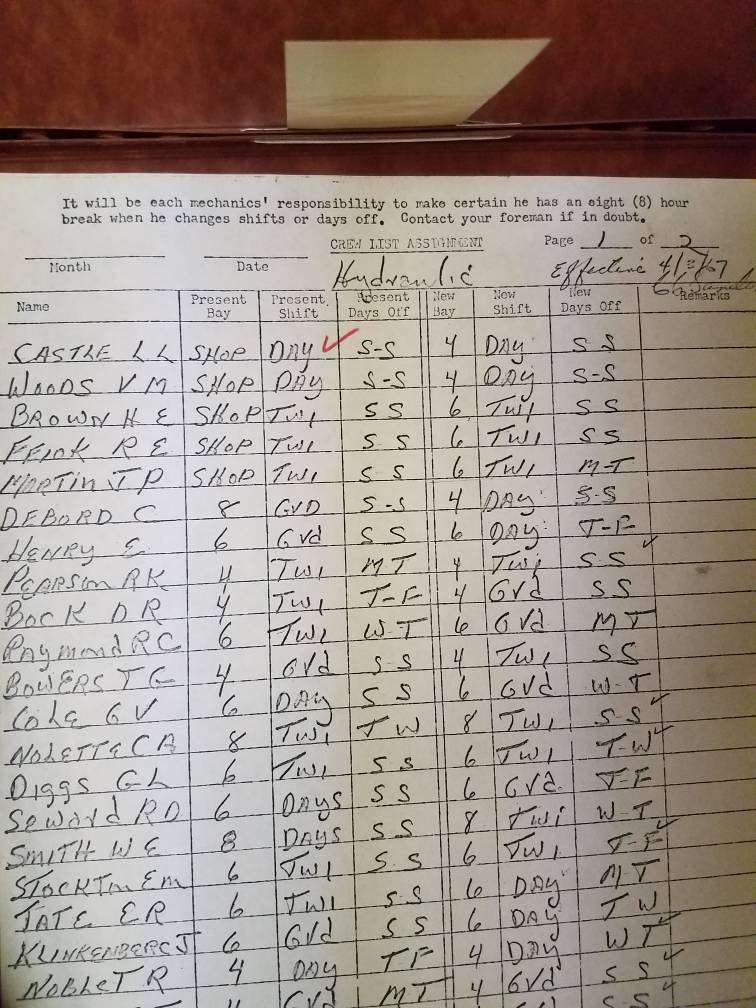 It will be each mechanics' responsibility to make certain he has an eight (8) hour
break when he changes shifts or days off. Contact your foreman if in doubt.
CREW LIST ASSIGNMENT Page 1 of 2
Month Date Hydraulic Effective
Name Present Bay Present Shift Present Days Off New Bay New Shift New Days Off Remarks
CASTLE L L SHOP DAY ✓ S-S 4 DAY S S
WOODS V M SHOP DAY S-S 4 DAY S-S
BROWN H E SHOP TWI S S 6 TWI S S
FEINK R E SHOP TWI S S 6 TWI S S
MARTIN J P SHOP TWI S S 6 TWI M-T
DEBORD C 8 GVD S-S 4 DAY S-S
HENRY E 6 Gvd S S 6 DAY T-F
PEARSON RK 4 TWI MT 4 Twi S-S ✓
BOCK D R 4 TWI T-F 4 GVd S S
RAYMOND RC 6 TWI W-T 6 GVd MT
BOWERS T G 4 GVd S-S 4 TWI SS
COLE G V 6 DAY S S 6 GVd W-T
NOLETTE C A 8 TWI T W 8 TWI S-S ✓
DIGGS G L 6 TWI S S 6 TWI T-W ✓
SEWARD RD 6 DAYS S S 6 GVd T-F
SMITH W E 8 DAYS S S 8 TWI W-T
STOCKTON EM 6 TWI S-S 6 TWI T-F ✓
TATE ER 6 TWI S-S 6 DAY M-T
KLINKENBERG J 6 GVd S S 6 DAY T W
NOBLET R 4 DAY T F 4 DAY W T ✓
4 GVd MT 4 GVd S S ✓
S S ✓